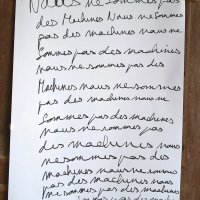 Nous ne sommes pas
des Machines Nous ne sommes
pas des machines nous ne
Sommes pas des machines
nous ne sommes pas des
Machines nous ne sommes
pas des machines nous ne
Sommes pas des machines
nous ne sommes pas
des machines nous
ne sommes pas des
machines nous ne sommes
pas des machines nous
ne sommes pas des machines